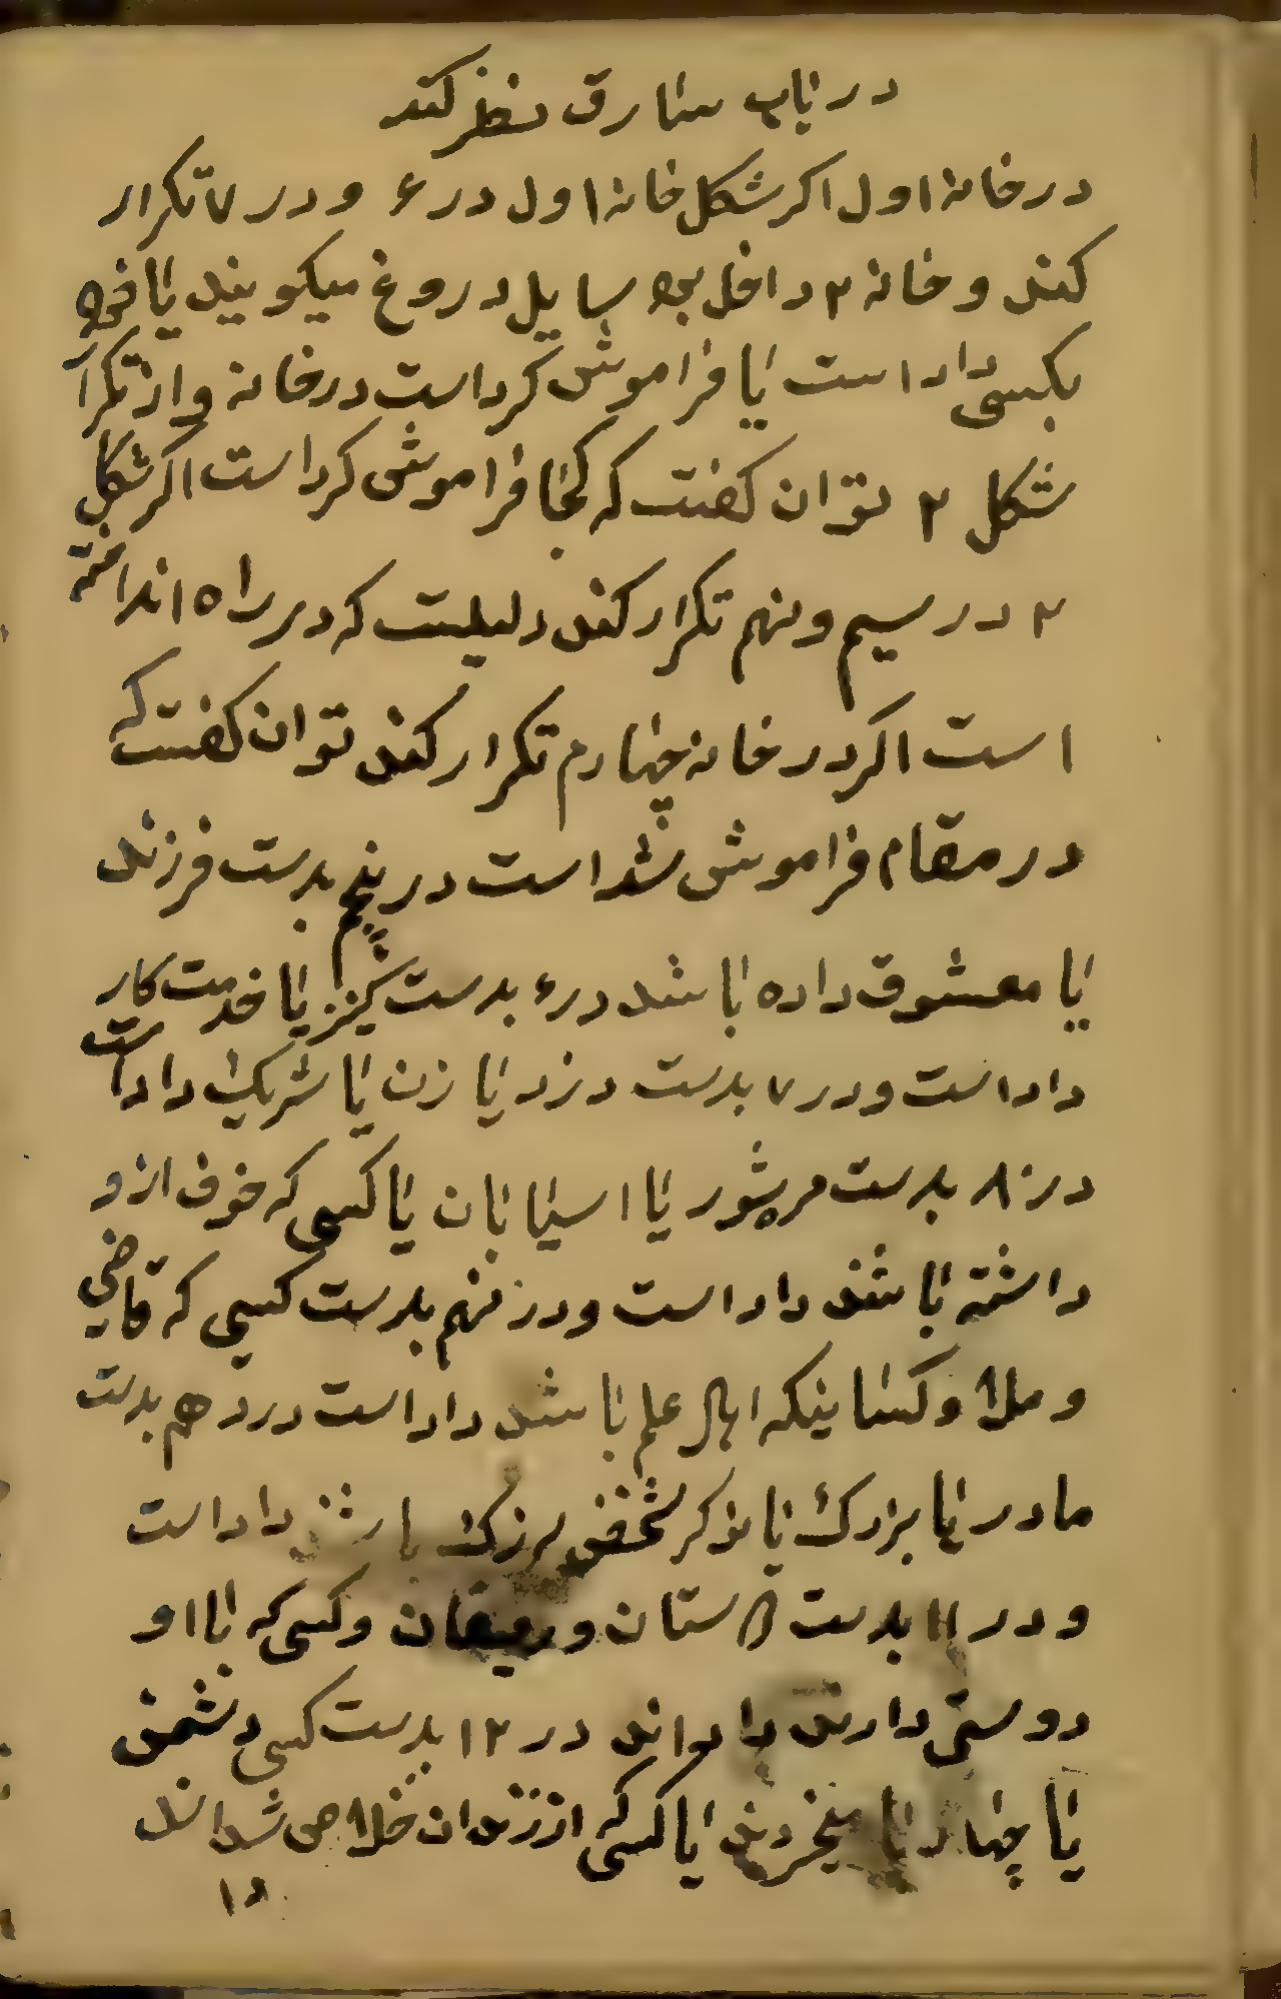 در باب سارق نظر کند
در خانه اول اکر شکل خانه اول در ۶ و در ۷ تکرار
کند و خانه ۲ داخل بود سایل دروغ میکویند یا خود
بکسی داداست یا فراموش کرداست در خانه و از تکرار
شکل ۲ توان کفت که کجا فراموش کرداست اکر شکل
۲ در سیم و نهم تکرار کند دلیلست که در راه انداخته
است اکر در خانه چهارم تکرار کند توان کفت که
در مقام فراموش شداست در پنجم بدست فرزند
یا معشوق داده باشد در ۶ بدست کنیز یا خدمت کار
داداست و در ۷ بدست دزد یا زن یا شریک داداست
در ۸ بدست مرشور یا اسیابان یا کسی که خوف ازو
داشته باشند داداست و در نهم بدست کسی که قاضی
و ملا و کسانیکه اهل علم باشد داداست در دهم بدست
مادر یا بزرک یا نوکر شخص بزرک باشند داداست
و در ۱۱ بدست دوستان و رفیقان و کسی که با او
دوستی دارند دادواند در ۱۲ بدست کسی دشمن
یا چهار پا میخرند یا کسی که از زندان خلاص شداند